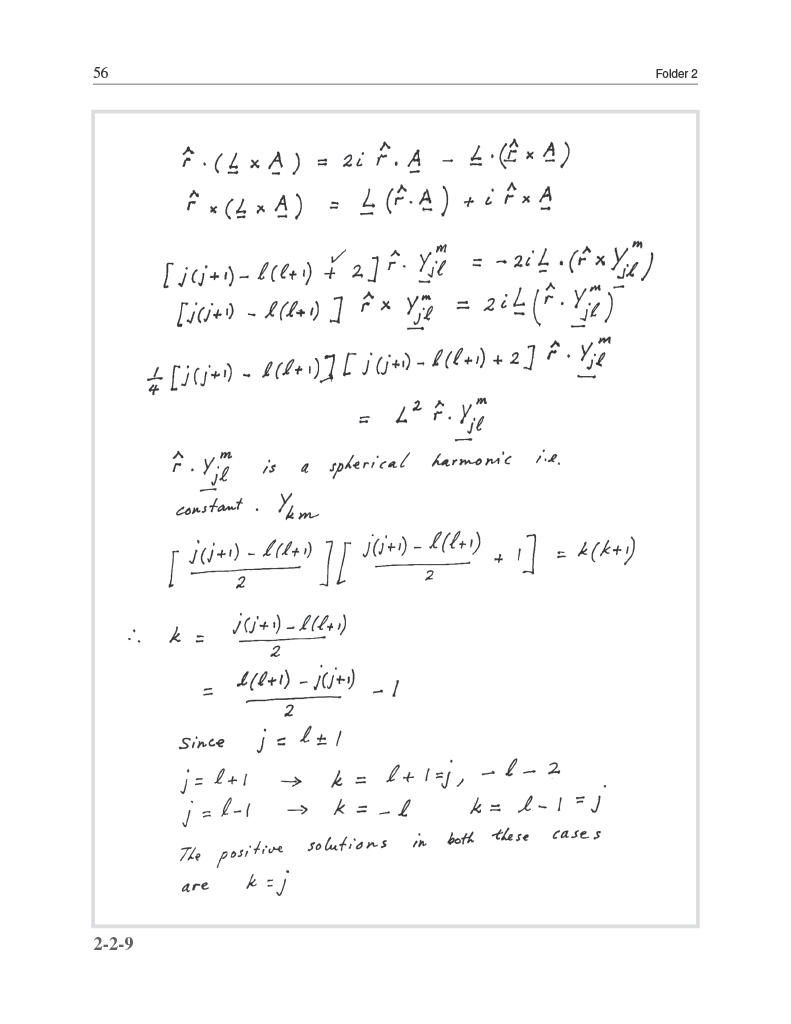 56 Folder 2
r̂ · (L̲ × A̲) = 2i r̂ · A̲ - L̲ · (r̂ × A̲)
r̂ × (L̲ × A̲) = L̲ (r̂ · A̲) + i r̂ × A̲
[j(j+1) - l(l+1) + 2] r̂ · Y̲ⱼₗᵐ = - 2i L̲ · (r̂ × Y̲ⱼₗᵐ)
[j(j+1) - l(l+1)] r̂ × Y̲ⱼₗᵐ = 2i L̲ (r̂ · Y̲ⱼₗᵐ)
1/4 [j(j+1) - l(l+1)] [j(j+1) - l(l+1) + 2] r̂ · Y̲ⱼₗᵐ
= L² r̂ · Y̲ⱼₗᵐ
r̂ · Y̲ⱼₗᵐ is a spherical harmonic i.e.
constant . Yₖₘ
[ (j(j+1) - l(l+1))/2 ] [ (j(j+1) - l(l+1))/2 + 1 ] = k(k+1)
∴ k = (j(j+1) - l(l+1))/2
= (l(l+1) - j(j+1))/2 - 1
Since j = l ± 1
j = l+1 → k = l+1 = j, - l - 2
j = l-1 → k = - l k = l - 1 = j
The positive solutions in both these cases
are k = j
2-2-9